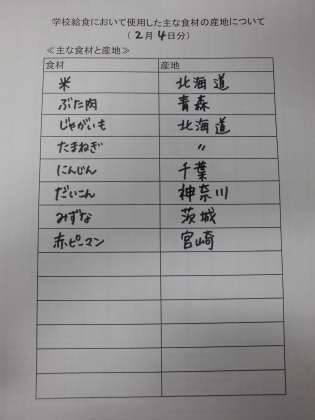 学校給食において使用した主な食材の産地について
(2月4日分)
≪主な食材と産地≫
食材 産地
米 北海道
ぶた肉 青森
じゃがいも 北海道
たまねぎ 〃
にんじん 千葉
だいこん 神奈川
みずな 茨城
赤ピーマン 宮崎